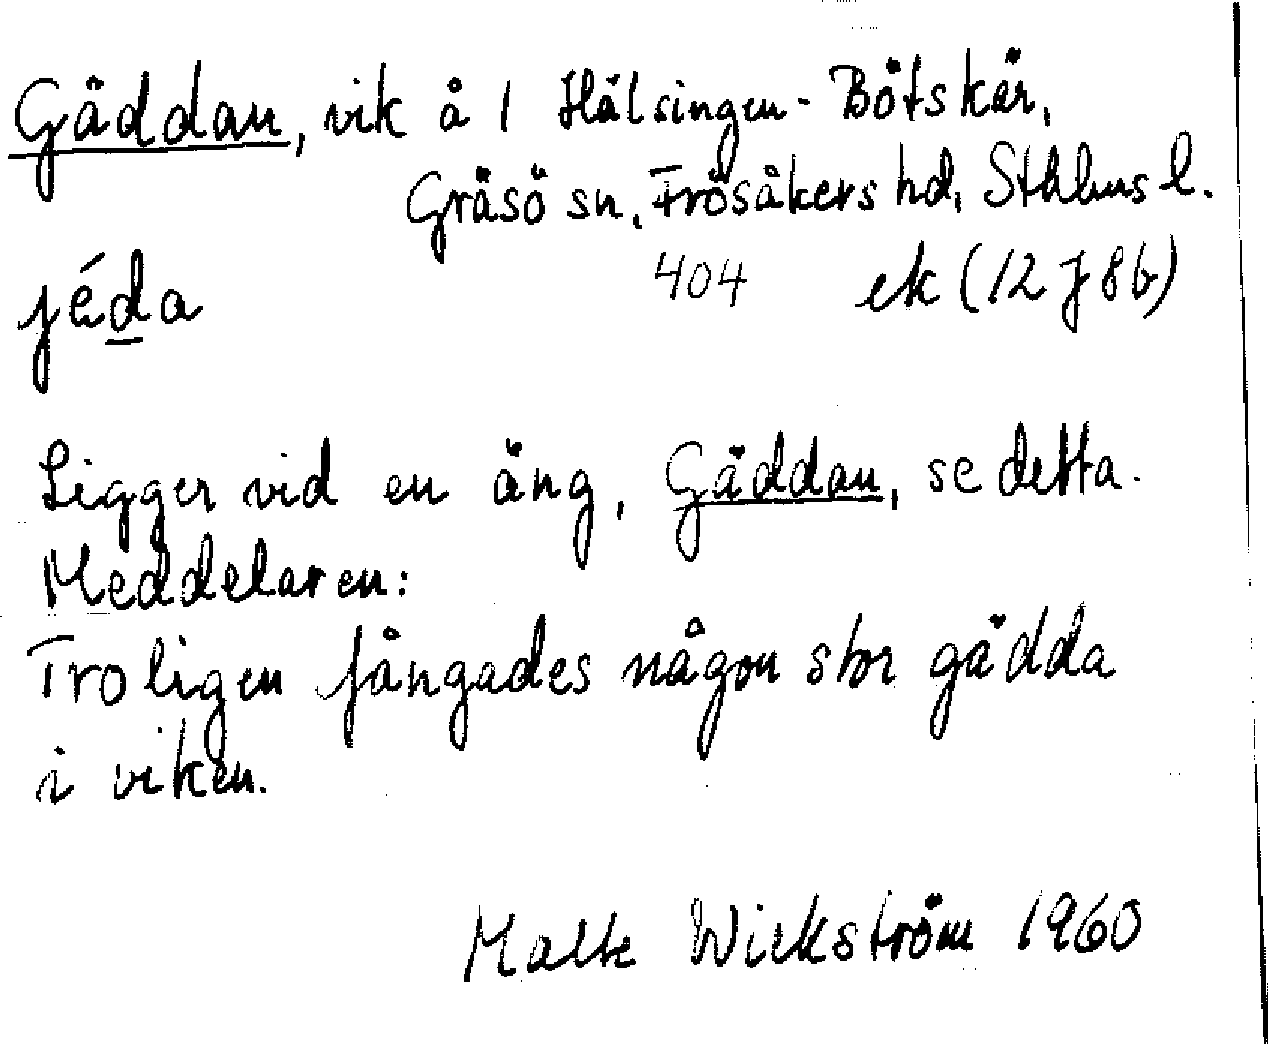 Gäddan, vik å 1 Hälsingen-Bötskär,
Gräsö sn, Frösåkers hd, Sthlms l.
404 ek (12 J 8 b)
jéda
Ligger vid en äng, Gäddan, se detta.
Meddelaren:
Troligen fångades någon stor gädda
i viken.
Malte Wickström 1960